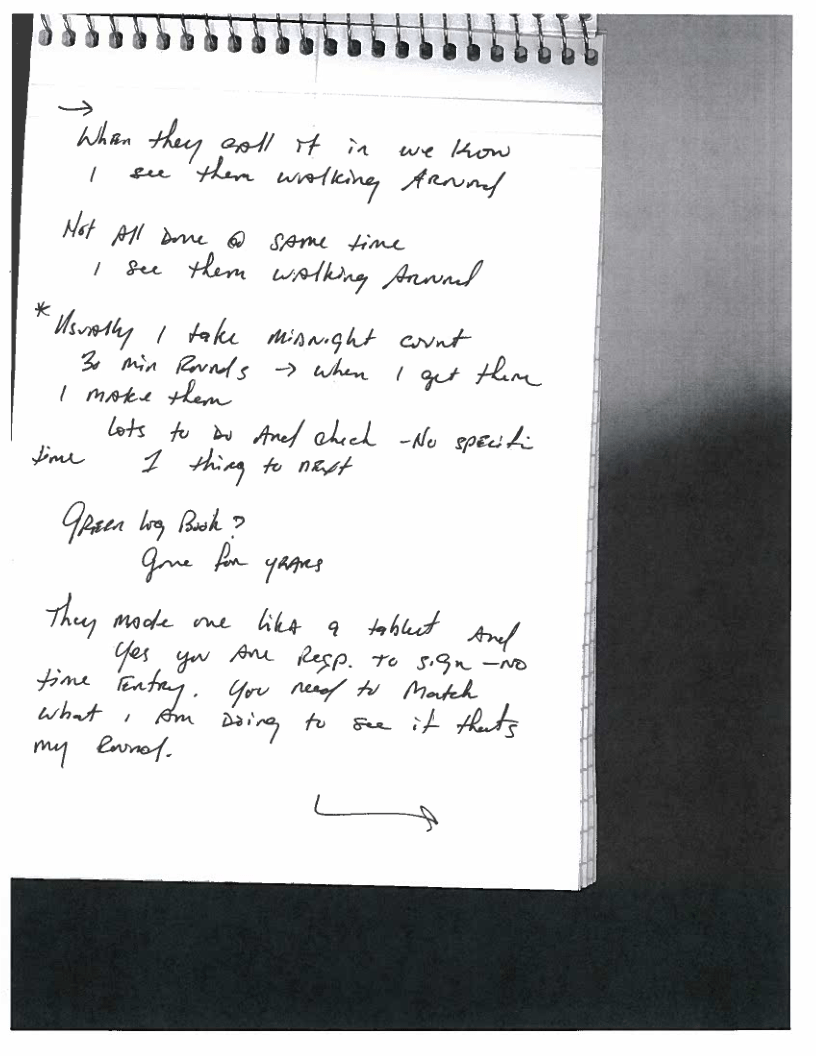 →
When they call it in we know
I see them walking Around
Not All Done @ same time
I see them walking Around
* Usually I take midnight count
30 min Rounds → when I get them
I make them
Lots to Do And check - No specific
time 1 thing to next
Green log Book?
Gone for years
They made one like a tablet And
Yes you Are Resp. to sign - NO
time Entry. You need to Match
what I Am Doing to see if thats
my Round.
→